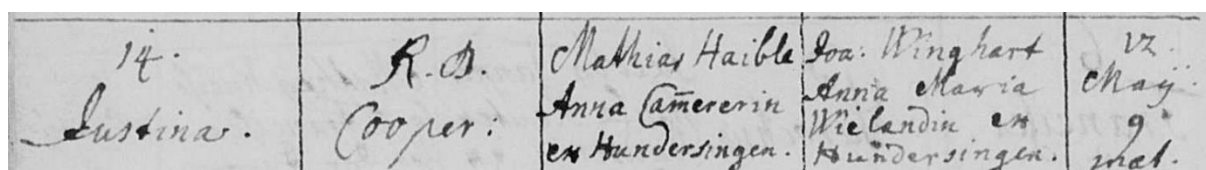 14.
Justina.
R. D.
Cooper:
Mathias Haible
Anna Cam̄ererin
ex Hundersingen.
Joa: Winghart
Anna Maria
Wielandin ex
Hundersingen.
12.
Maij.
9
mat.